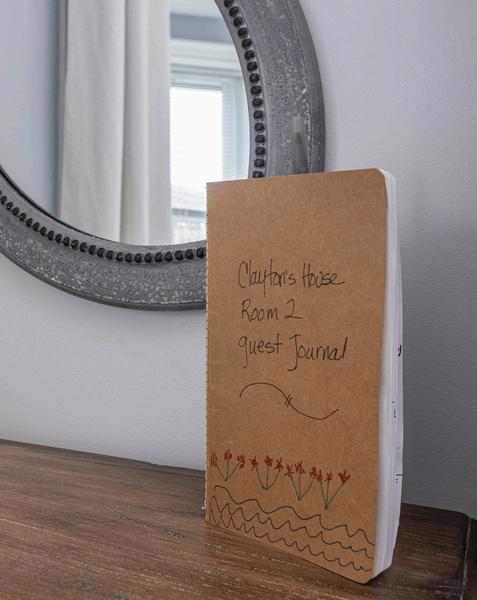 Clayton's House
Room 2
guest Journal